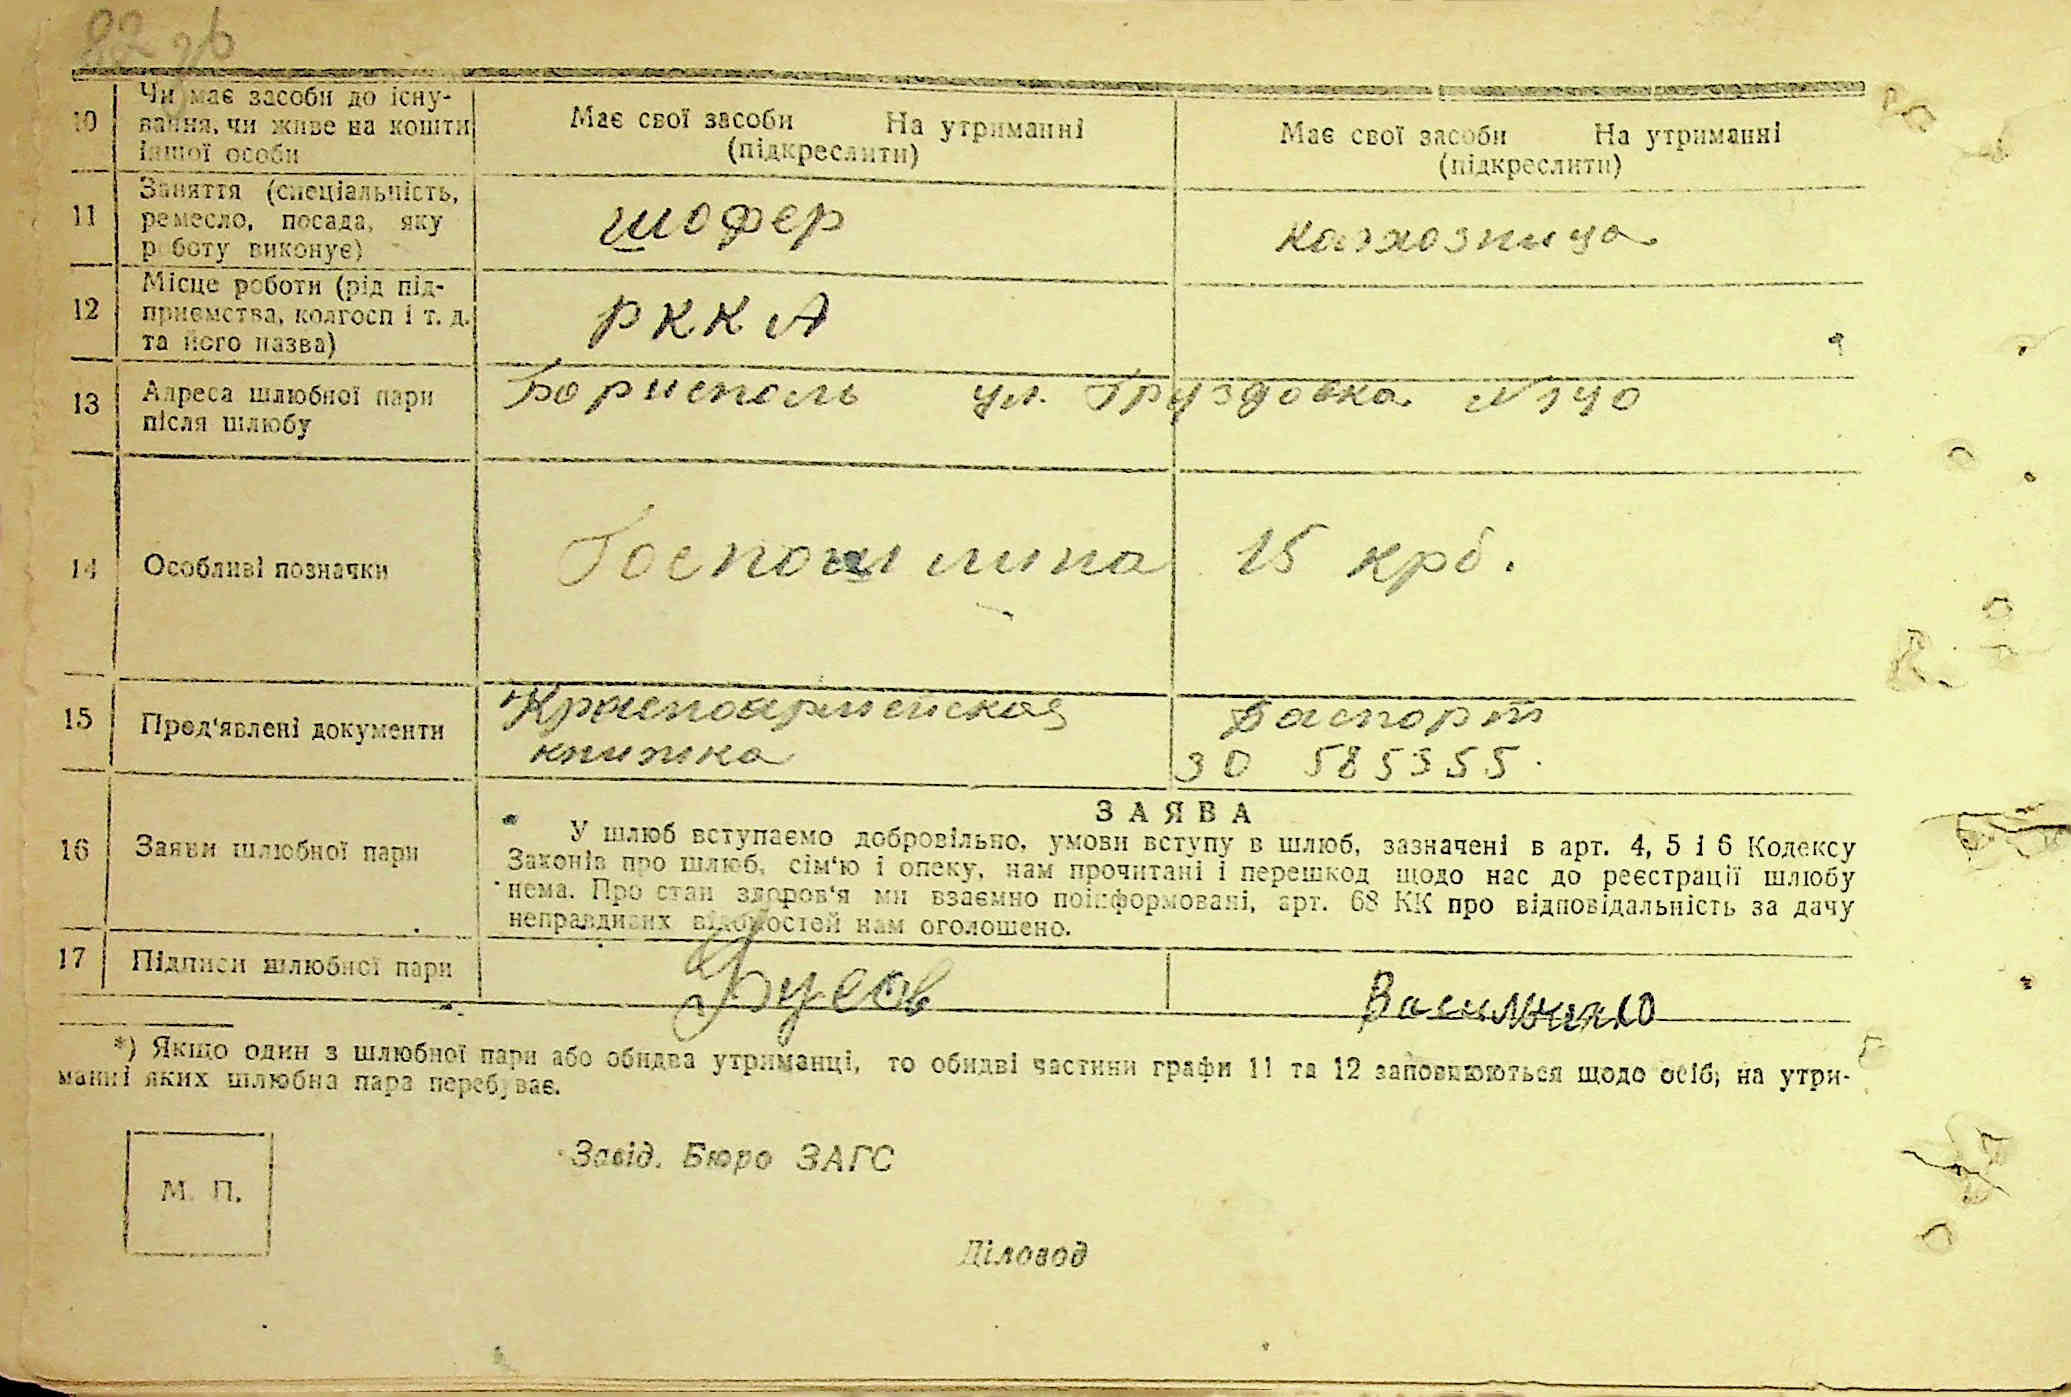 82 зв
10 Чи має засоби до існу- Має свої засоби На утриманні Має свої засоби На утриманні
вання, чи живе на кошти (підкреслити) (підкреслити)
іншої особи
11 Заняття (спеціальність, шофер колхозница
ремесло, посада, яку
роботу виконує)
12 Місце роботи (рід під- РККА
приємства, колгосп і т. д.
та його назва)
13 Адреса шлюбної пари Борисполь ул. Груздовка №140
після шлюбу
14 Особливі позначки Госпошлина 15 крб.
15 Пред'явлені документи Красноармейская Паспорт
книжка ЗО 585355
ЗАЯВА
16 Заяви шлюбної пари У шлюб вступаємо добровільно, умови вступу в шлюб, зазначені в арт. 4, 5 і 6 Кодексу
Законів про шлюб, сім'ю і опеку, нам прочитані і перешкод щодо нас до реєстрації шлюбу
нема. Про стан здоров'я ми взаємно поінформовані, арт. 68 КК про відповідальність за дачу
неправдивих відомостей нам оголошено.
17 Підписи шлюбної пари
*) Якщо один з шлюбної пари або обидва утриманці, то обидві частини графи 11 та 12 заповнюються щодо осіб, на утри-
манні яких шлюбна пара перебуває.
Завід. Бюро ЗАГС
М. П.
Діловод